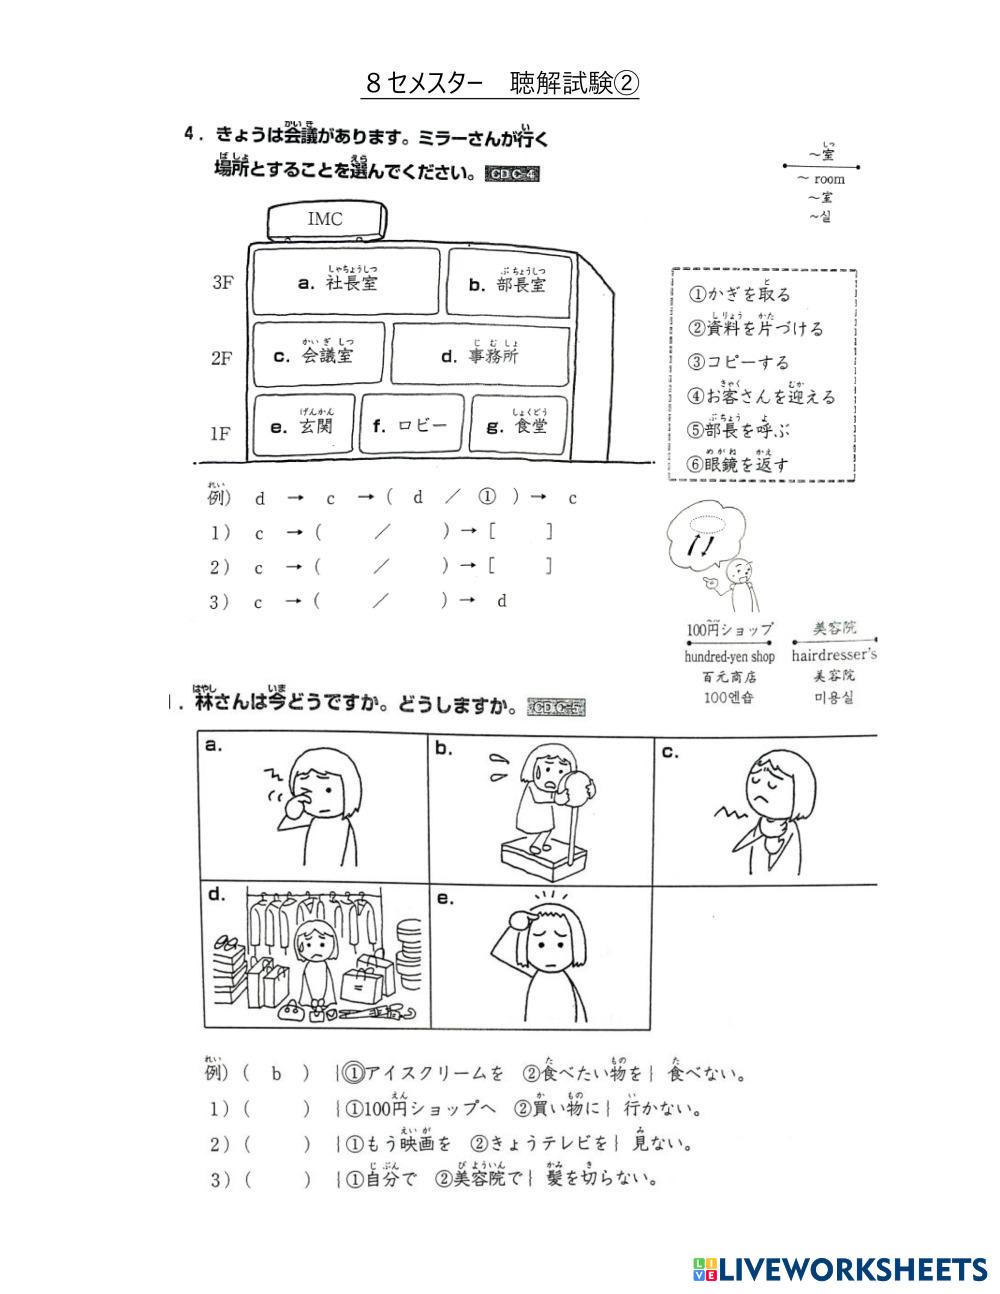 ８セメスター　聴解試験②
4．きょうは会議があります。ミラーさんが行く
場所とすることを選んでください。 CD C-4
～室
～ room
～室
～실
IMC
3F a．社長室 b．部長室
2F c．会議室 d．事務所
1F e．玄関 f．ロビー g．食堂
①かぎを取る
②資料を片づける
③コピーする
④お客さんを迎える
⑤部長を呼ぶ
⑥眼鏡を返す
例） d → c →（ d ／ ① ）→ c
1） c →（ ／ ）→［ ］
2） c →（ ／ ）→［ ］
3） c →（ ／ ）→ d
100円ショップ
hundred-yen shop
百元商店
100엔숍
美容院
hairdresser's
美容院
미용실
1．林さんは今どうですか。どうしますか。 CD C-5
a. b. c.
d. e.
例）（ b ） ｛①アイスクリームを ②食べたい物を｝食べない。
1）（ ） ｛①100円ショップへ ②買い物に｝行かない。
2）（ ） ｛①もう映画を ②きょうテレビを｝見ない。
3）（ ） ｛①自分で ②美容院で｝髪を切らない。
LIVE LIVEWORKSHEETS